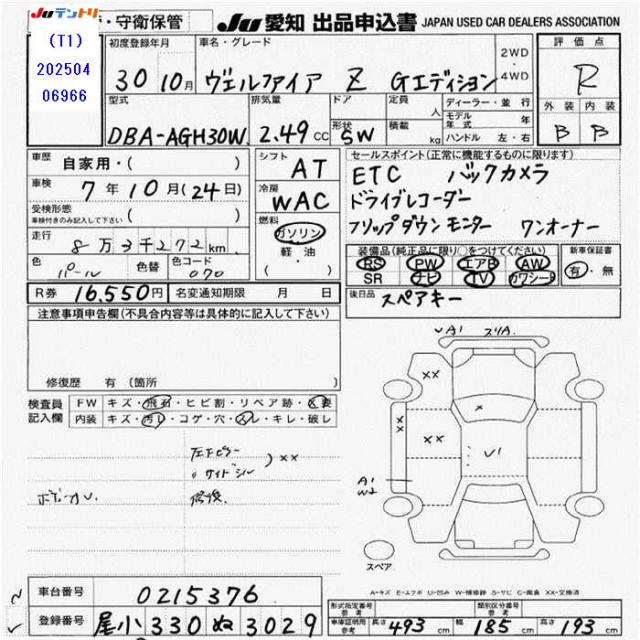 JUテントリ 守衛保管 JU 愛知 出品申込書 JAPAN USED CAR DEALERS ASSOCIATION
(T1)
202504
06966
初度登録年月 車名・グレード 2WD ・ 4WD 評価点
30 10月 ヴェルファイア Z Gエディション R
型式 排気量 ドア 定員 人 ディーラー・並行 外装 内装
DBA-AGH30W 2.49cc 形状 5W 積載 kg モデル年式 ハンドル 左・右 B B
車歴 自家用・( ) シフト AT セールスポイント(正常に機能するものに限ります)
車検 7年10月(24日) 冷房 WAC ETC バックカメラ
ドライブレコーダー
受検形態 車検付きのみ記入して下さい ( ) 燃料 フリップダウンモニター ワンオーナー
走行 8万3千272km ガソリン 軽油 ( ) 装備品(純正品に限り○をつけてください) 新車保証書
色 パール 色替 色コード 070 RS PW エアB AW 有・無
SR ナビ TV カワシート
R券 16,550円 名変通知期限 月 日 後日品 スペアキー
注意事項申告欄(不具合内容等は具体的に記入して下さい)
修復歴 有(箇所
検査員記入欄 FW キズ・飛石・ヒビ割・リペア跡・交要
内装 キズ・汚レ・コゲ・穴・スレ・キレ・破レ
左下ピラー
〃サイドシル ) ××
修復
A1 スリA
××
×
××
××
V1
A1
W2
スペア
A-キズ E-エクボ U-凹み W-補修跡 S-サビ C-腐食 XX-交換済
車台番号 0215376
登録番号 尾小 330 ぬ 3029
形式指定番号 参考 類別区分番号 参考
車庫証明用 参考 長さ 493cm 幅 185cm 高さ 193cm